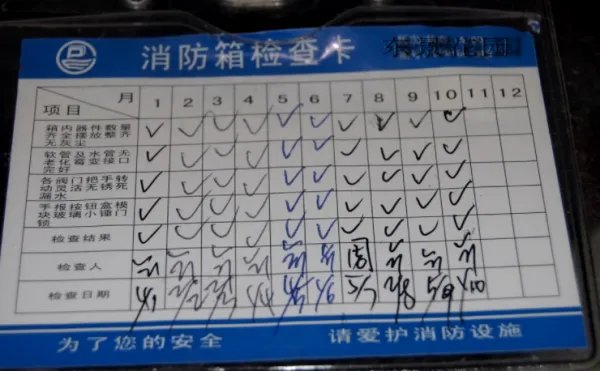 消防箱检查卡
月 1 2 3 4 5 6 7 8 9 10 11 12
项目
箱内器件数量
齐全摆放整齐
无灰尘
软管及水管无
老化霉变接口
完好
各阀门把手转
动灵活无锈死
漏水
手报按钮盒模
块玻璃小锤门
锁
检查结果
检查人 周
检查日期 4/1 5/7 2/8 5/9 4/10
为了您的安全 请爱护消防设施